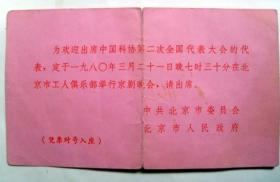 为欢迎出席中国科协第二次全国代表大会的代
表，定于一九八〇年三月二十一日晚七时三十分在北
京市工人俱乐部举行京剧晚会，请出席。
中共北京市委员会
北京市人民政府
（凭票对号入座）